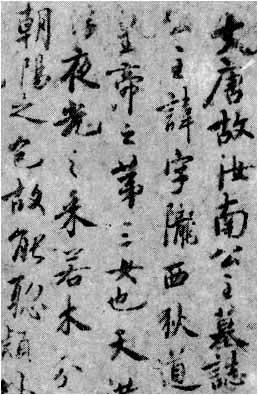 大唐故汝南公主墓誌
公主諱字隴西狄道
皇帝之第三女也天潢
浮夜光之采若木分
朝陽之色故能聰穎